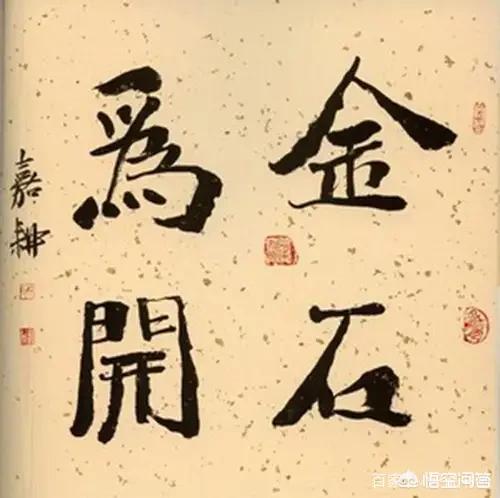 金石
為開
嘉耕
百家
悟空问答